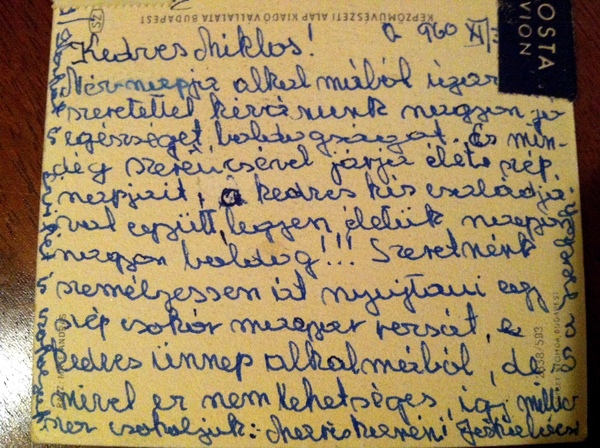 KÉPZŐMŰVÉSZETI ALAP KIADÓVÁLLALATA BUDAPEST
POSTA
VION
960 XI/3
Kedves Miklós!
Név-napja alkalmából igaz
szeretettel kívánunk nagyon jó
egésséget, boldogságot. És min-
dég szerencsével járja élete szép
napjait, a kedves kis családjá
val együtt, legyen életük napja
nagyon bóldog!!! Szeretnénk
személyessen át nyujtani egy
szép csokór magyar rózsát, e
kedves ünnep alkalmából, de
mivel ez nem lehetséges, igy millió
szor csokoljuk: